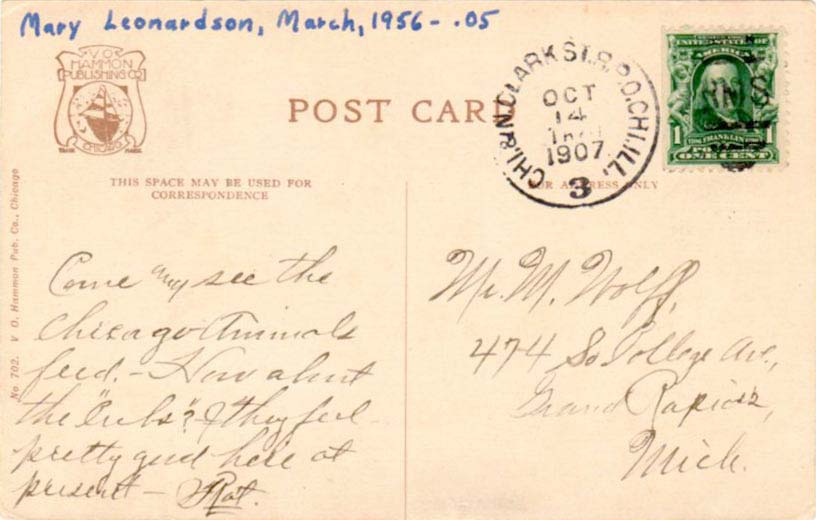 Mary Leonardson, March, 1956 - .05
V.O.
HAMMON
PUBLISHING CO
CHICAGO
TRADE MARK
POST CARD
CHI. & N. CLARK ST. R.P.O. CHI. ILL.
OCT
14
1907
3
UNITED STATES OF
AMERICA
1 FRANKLIN 1
ONE CENT
THIS SPACE MAY BE USED FOR
CORRESPONDENCE
FOR ADDRESS ONLY
No 702. V. O. Hammon Pub. Co., Chicago
Come see the
Chicago Animals
feed. - How about
the "Cubs"? They feel
pretty good here at
present -
Mr. M. Wolff,
474 So College Ave.,
Grand Rapids,
Mich.